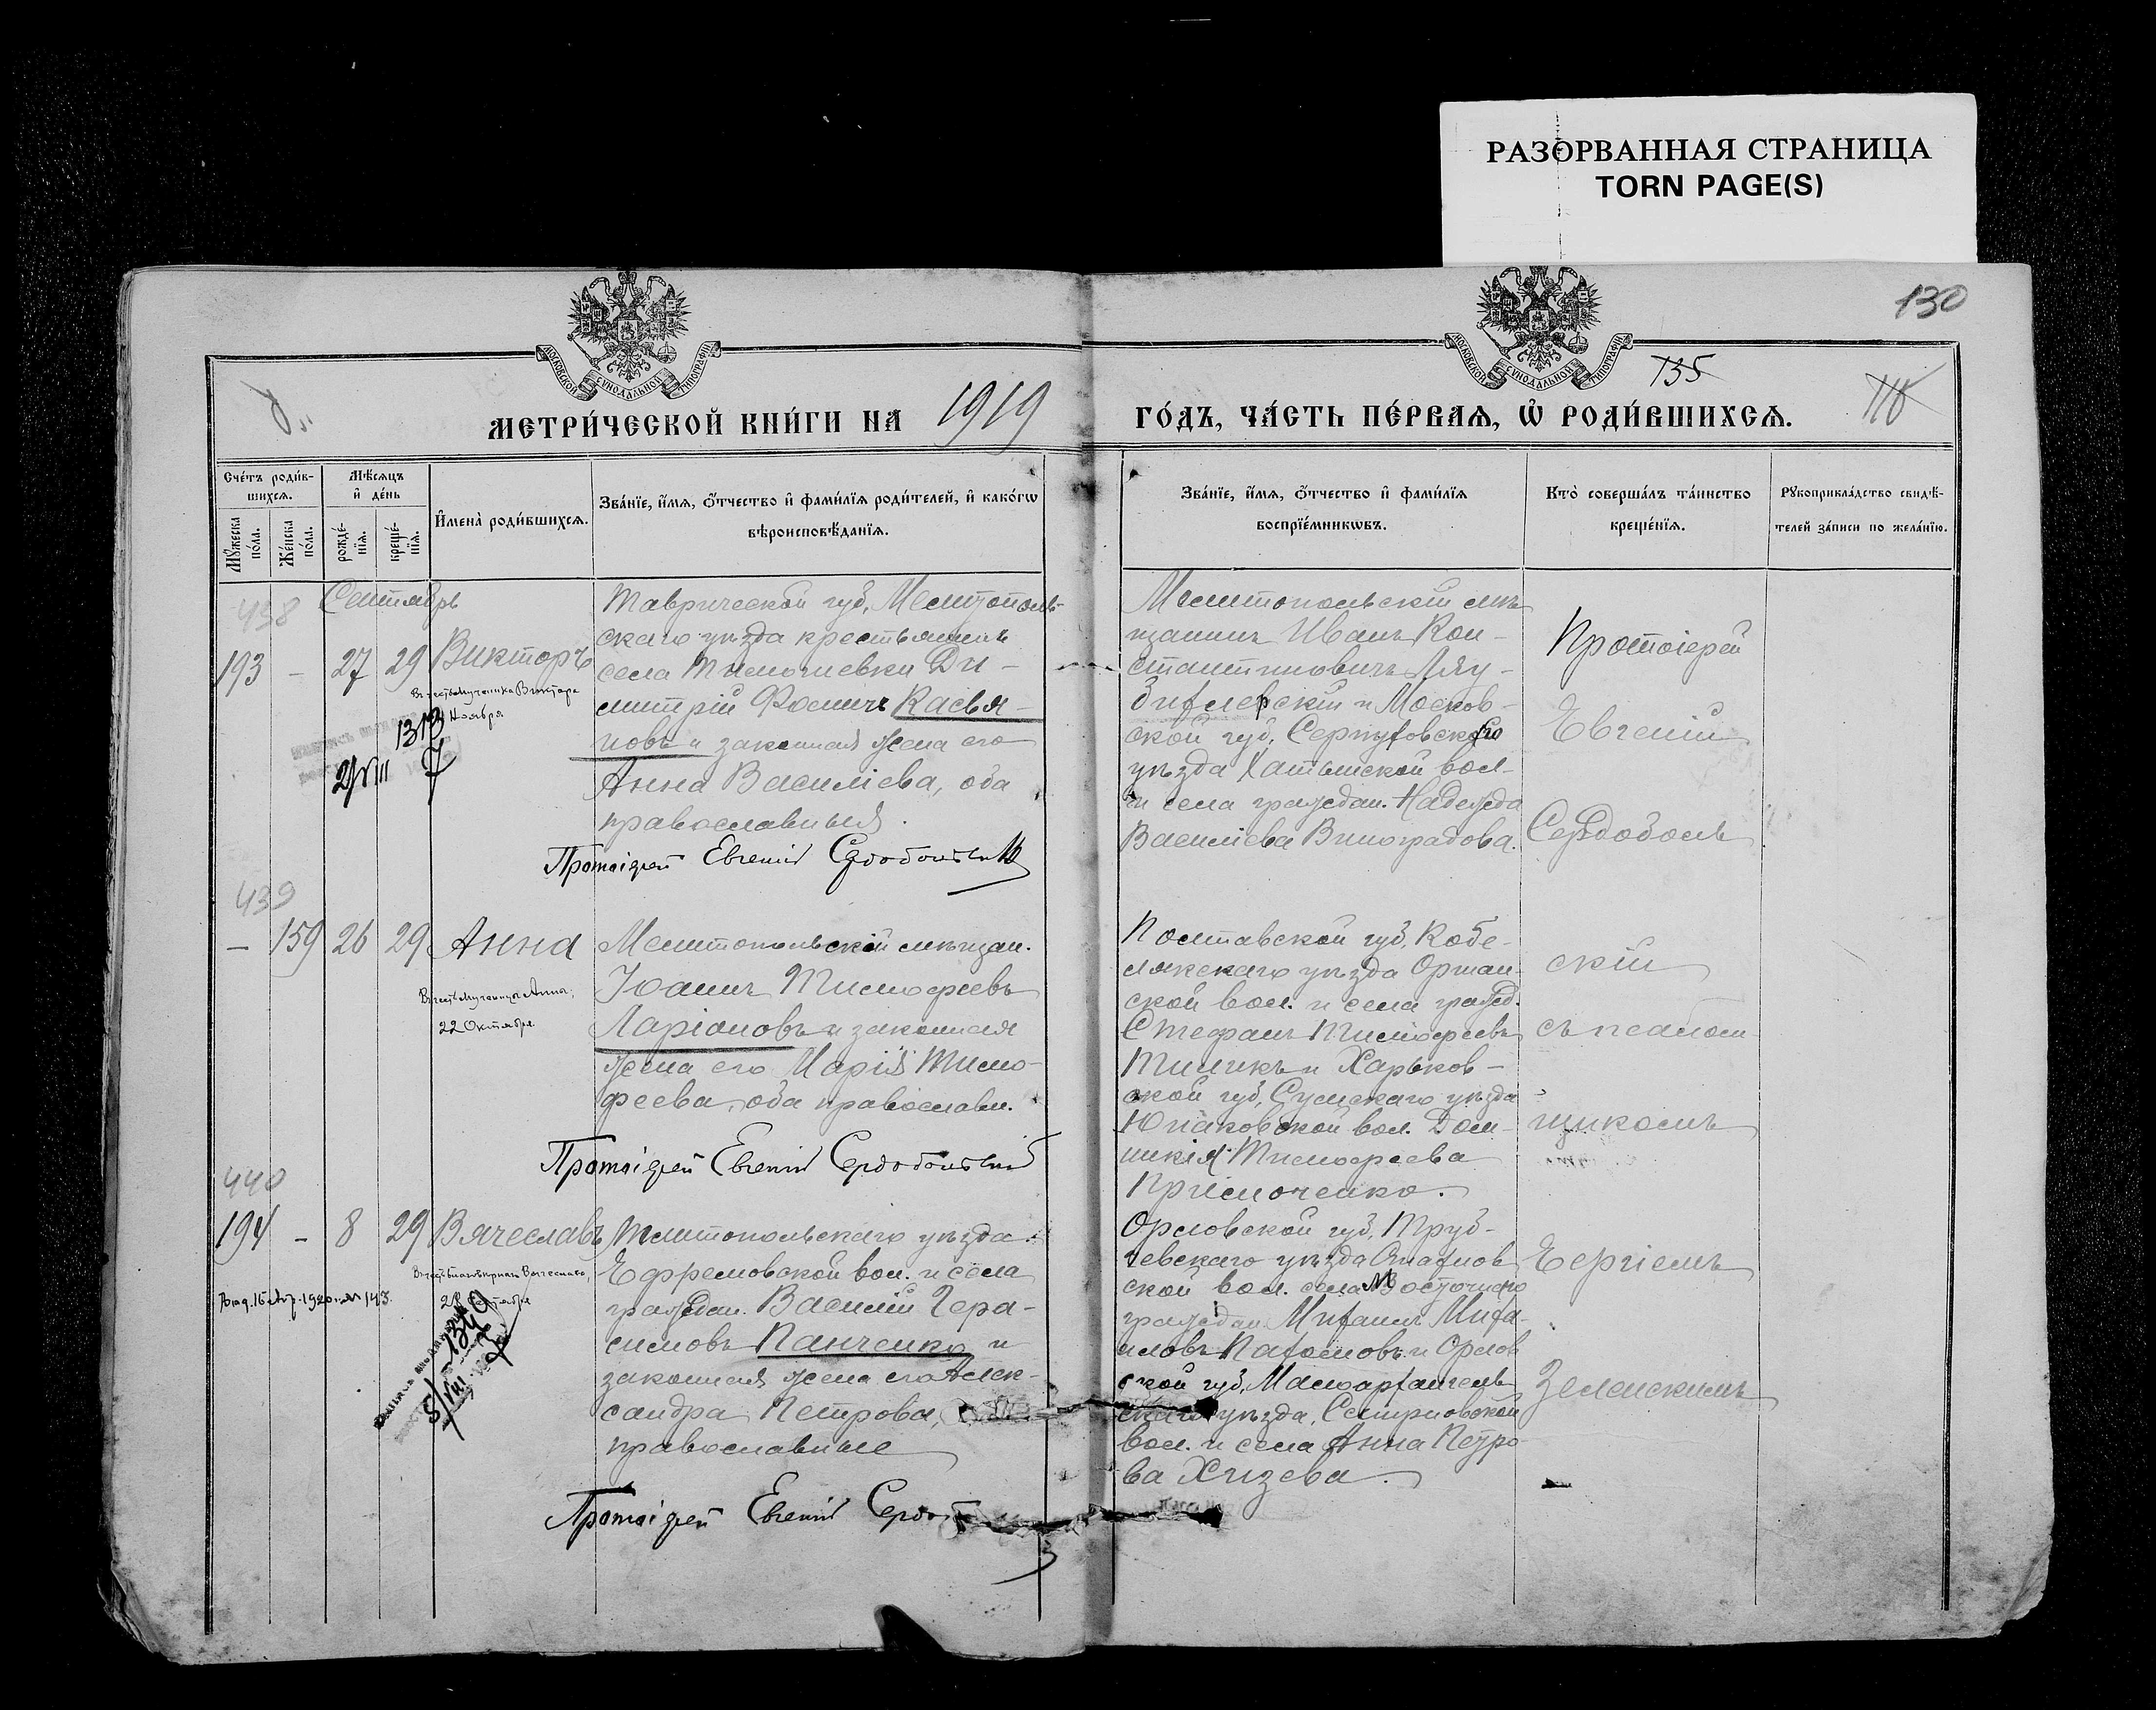 РАЗОРВАННАЯ СТРАНИЦА
TORN PAGE(S)
130
МОСКОВСКОЙ СУНОДАЛЬНОЙ ТИПОГРАФІИ
МОСКОВСКОЙ СУНОДАЛЬНОЙ ТИПОГРАФІИ
135
МЕТРИ́ЧЕСКОЙ КНИ́ГИ НА 1919
ГО́ДЪ, ЧА́СТЬ ПЕ́РВАЯ, Ѡ РОДИ́ВШИХСЯ.
Сче́тъ роди́в-
шихся.
Мѣ́сяцъ
и де́нь
Му́жеска
по́ла.
Же́нска
по́ла.
рожде́-
нїя.
креще́-
нїя.
Имена̀ роди́вшихся.
Зва́нїе, и́мя, о́тчество и фами́лїя роди́телей, и како́гѡ
вѣроисповѣ́данїя.
Зва́нїе, и́мя, о́тчество и фами́лїя
воспрїе́мникѡвъ.
Кто̀ соверша́лъ та́инство
креще́нїя.
Рукоприкла́дство свидѣ́-
телей за́писи по жела́нїю.
438
Сентябрь
193 - 27 29 Викторъ
Въ честь мученика Виктора
11 Ноября
1313
2/VIII 7
Таврической губ, Мелитополь-
скаго уѣзда крестьянинъ
села Тимошевки Ди-
митрій Фоминъ Касья-
новъ и законная жена его
Анна Василіева, оба
православныя.
Протоіерей Евгеній Сердобольскій
Мелитопольскій мѣ-
щанинъ Иванъ Кон-
стантиновичъ
и Москов-
ской губ, Серпуховскаго
уѣзда Хатынской вол.
и села граждан. Надежда
Василіева Виноградова.
Протоіерей
Евгеній
Сердоболь
439
- 159 26 29 Анна
Въ честь мученицы Анны,
22 Октября.
Мелитопольскій мѣщан.
Іоаннъ Тимофеевъ
Ларіоновъ и законная
жена его Марія Тимо-
феева, оба православн.
Протоіерей Евгеній Сердобольскій
Полтавской губ, Кобе-
лякскаго уѣзда
ской вол. и села гражд.
Стефанъ Тимофеевъ
и Харьков-
ской губ, Сумскаго уѣзда
Юнаковской вол. Дом-
никія Тимофеева
скій
съ псалом-
щикомъ
440
194 - 8 29 Вячеславъ
Въ честь Вячеслава,
28 Сентября
1340
5/VIII 7
Мелитопольскаго уѣзда
Ефремовской вол. и села
граждан. Василій Гера-
симовъ Панченко и
законная жена его Алек-
сандра Петрова,
православные
Протоіерей Евгеній Сердоб
Орловской губ, Труб-
чевскаго уѣзда
ской вол. села
граждан. Михаилъ Миха-
иловъ Пахомовъ и Орлов
ской губ, Малоархангель
скаго уѣзда,
вол. и села Анна Петро-
ва Хизева.
Сергіемъ
Зеленскимъ